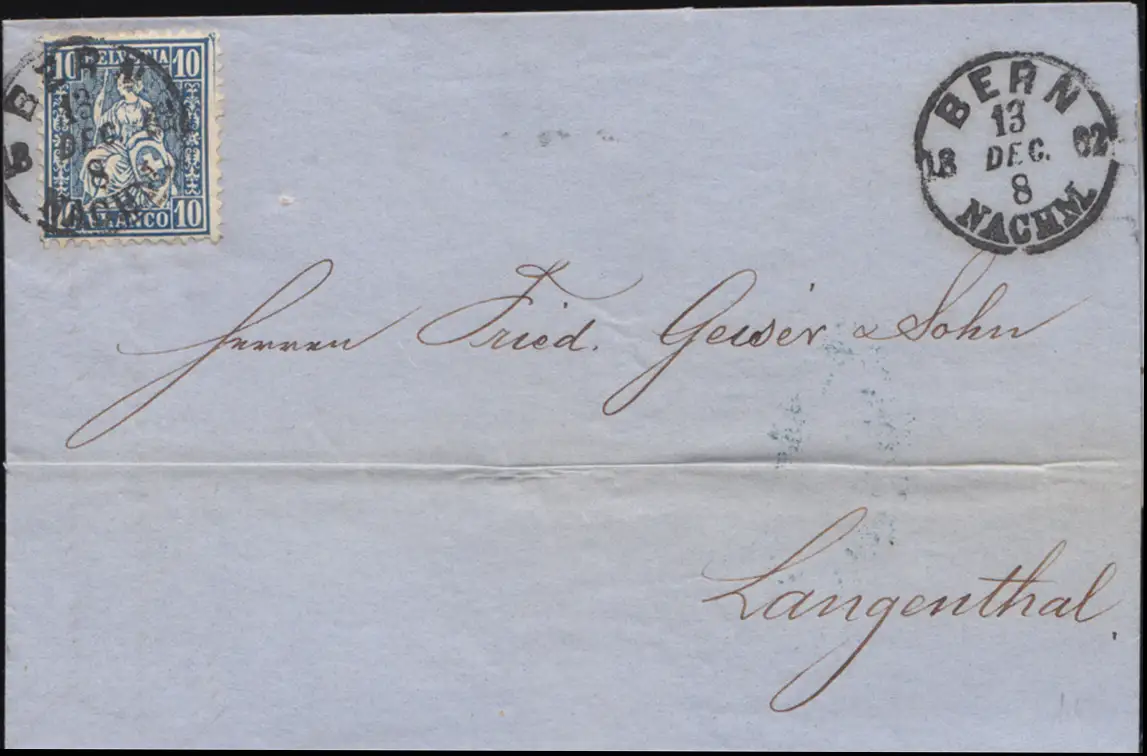 10 HELVETIA 10
10 FRANCO 10
BERN
13
DEC.
8
NACHM.
BERN
13
18 DEC. 62
8
NACHM.
Herren Fried. Geiser & Sohn
Langenthal.